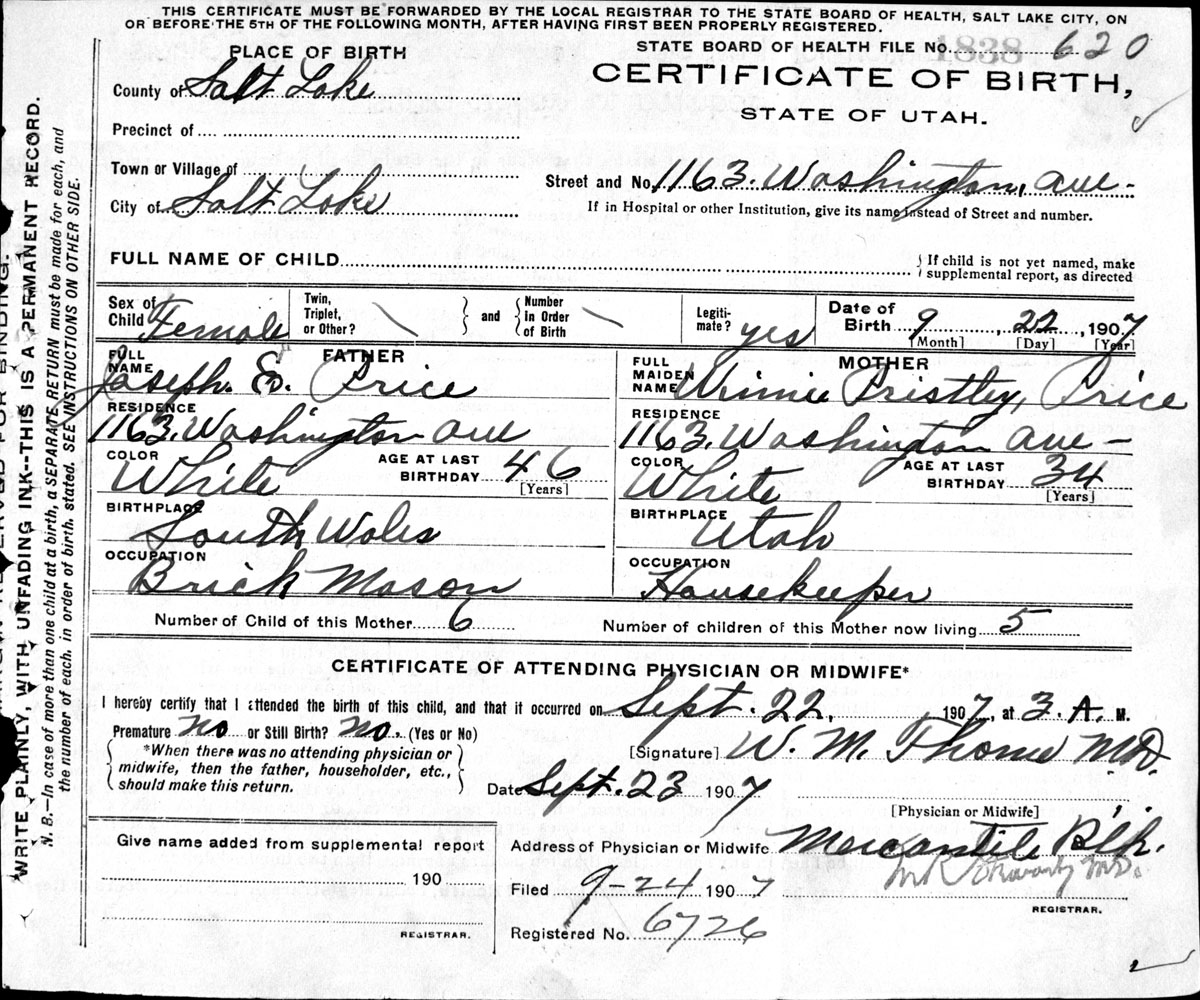 THIS CERTIFICATE MUST BE FORWARDED BY THE LOCAL REGISTRAR TO THE STATE BOARD OF HEALTH, SALT LAKE CITY, ON
OR BEFORE THE 5TH OF THE FOLLOWING MONTH, AFTER HAVING FIRST BEEN PROPERLY REGISTERED.
PLACE OF BIRTH
STATE BOARD OF HEALTH FILE No. 1838 620
CERTIFICATE OF BIRTH,
STATE OF UTAH.
County of Salt Lake
Precinct of
Town or Village of
City of Salt Lake
Street and No. 1163. Washington, Ave -
If in Hospital or other Institution, give its name instead of Street and number.
FULL NAME OF CHILD
If child is not yet named, make
supplemental report, as directed
Sex of Child Female
Twin, Triplet, or Other?
and
Number in Order of Birth
Legiti-mate? yes
Date of Birth 9, 22, 1907
[Month] [Day] [Year]
FATHER
FULL NAME Joseph. Ed. Price
RESIDENCE
1163. Washington Ave
COLOR White
AGE AT LAST BIRTHDAY 46
[Years]
BIRTHPLACE
South Wales
OCCUPATION
Brick Mason
MOTHER
FULL MAIDEN NAME Winnie Pristley, Price
RESIDENCE
1163. Washington Ave -
COLOR White
AGE AT LAST BIRTHDAY 34
[Years]
BIRTHPLACE
Utah
OCCUPATION
Housekeeper
Number of Child of this Mother 6
Number of children of this Mother now living 5
CERTIFICATE OF ATTENDING PHYSICIAN OR MIDWIFE*
I hereby certify that I attended the birth of this child, and that it occurred on Sept. 22, 1907, at 3 A. M.
Premature No or Still Birth? No. (Yes or No)
*When there was no attending physician or
midwife, then the father, householder, etc.,
should make this return.
[Signature] W. M. Thome M.D.
Date Sept. 23 1907
[Physician or Midwife]
Give name added from supplemental report
190
REGISTRAR.
Address of Physician or Midwife Mercantile Blk.
Filed 9-24 1907
M.D.
REGISTRAR.
Registered No. 6726
WRITE PLAINLY, WITH UNFADING INK--THIS IS A PERMANENT RECORD.
N. B.--In case of more than one child at a birth, a SEPARATE RETURN must be made for each, and
the number of each, in order of birth, stated. SEE INSTRUCTIONS ON OTHER SIDE.
FOR BINDING.